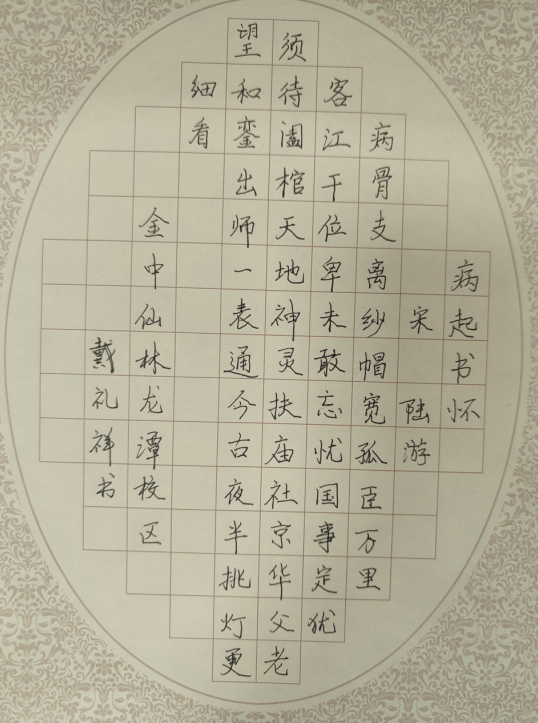 病起书怀
宋 陆游
病骨支离纱帽宽孤臣万里
客江干位卑未敢忘忧国事定犹
须待阖棺天地神灵扶庙社京华父老
望和銮出师一表通今古夜半挑灯更
细看
金中仙林龙潭校区
戴礼祥书